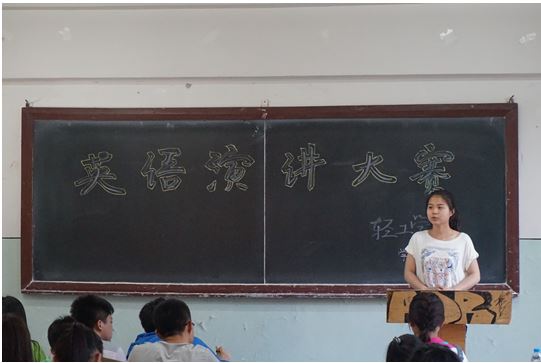 英语演讲大赛
轻工学
学